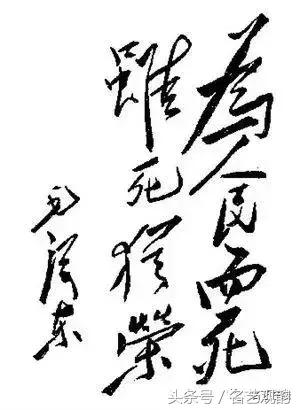 為人民而死
雖死猶榮
毛澤东
头条号/名艺观韵